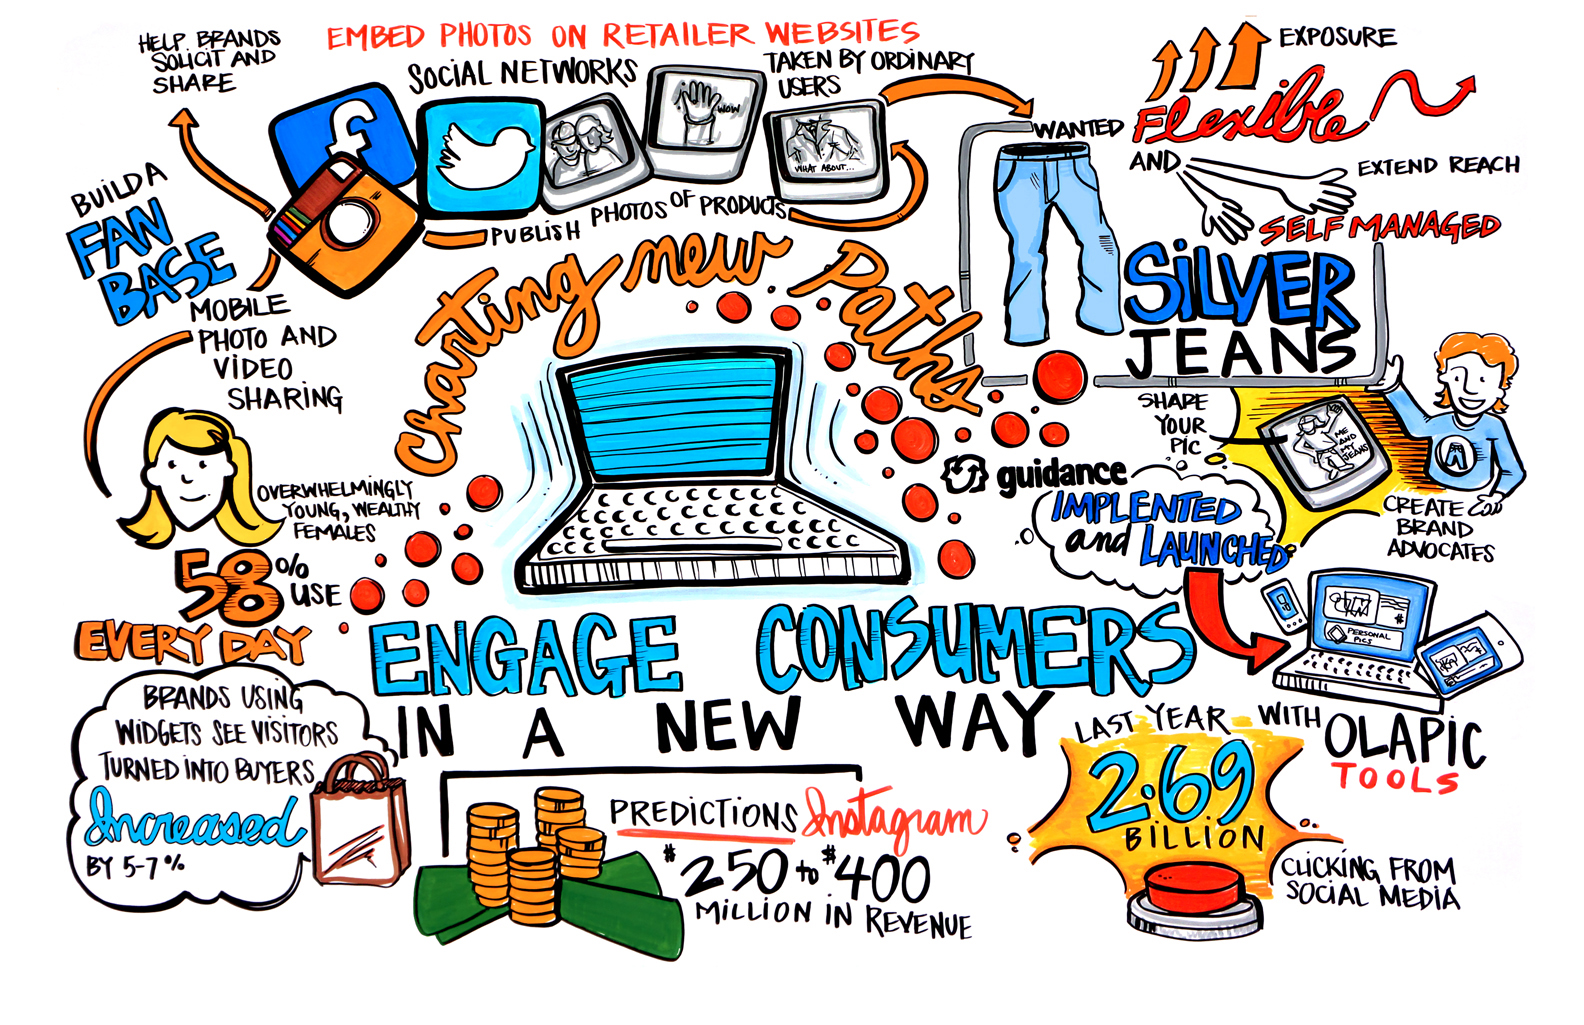 HELP BRANDS
SOLICIT AND
SHARE
EMBED PHOTOS ON RETAILER WEBSITES
SOCIAL NETWORKS
TAKEN BY ORDINARY
USERS
f
WOW
WHAT ABOUT...
PUBLISH PHOTOS OF PRODUCTS
BUILD A
FAN
BASE
MOBILE
PHOTO AND
VIDEO
SHARING
OVERWHELMINGLY
YOUNG, WEALTHY
FEMALES
58% USE
EVERY DAY
BRANDS USING
WIDGETS SEE VISITORS
TURNED INTO BUYERS
Increased
BY 5-7%
Charting new Paths
ENGAGE CONSUMERS
IN A NEW WAY
PREDICTIONS Instagram
$250 to $400
MILLION IN REVENUE
EXPOSURE
WANTED Flexible
AND
EXTEND REACH
SELF MANAGED
SILVER
JEANS
SHARE
YOUR
PIC
ME
AND
MY
JEANS
A
CREATE
BRAND
ADVOCATES
guidance
IMPLENTED
and LAUNCHED
PERSONAL
PICS
WITH OLAPIC
TOOLS
LAST YEAR
2.69
BILLION
CLICKING FROM
SOCIAL MEDIA